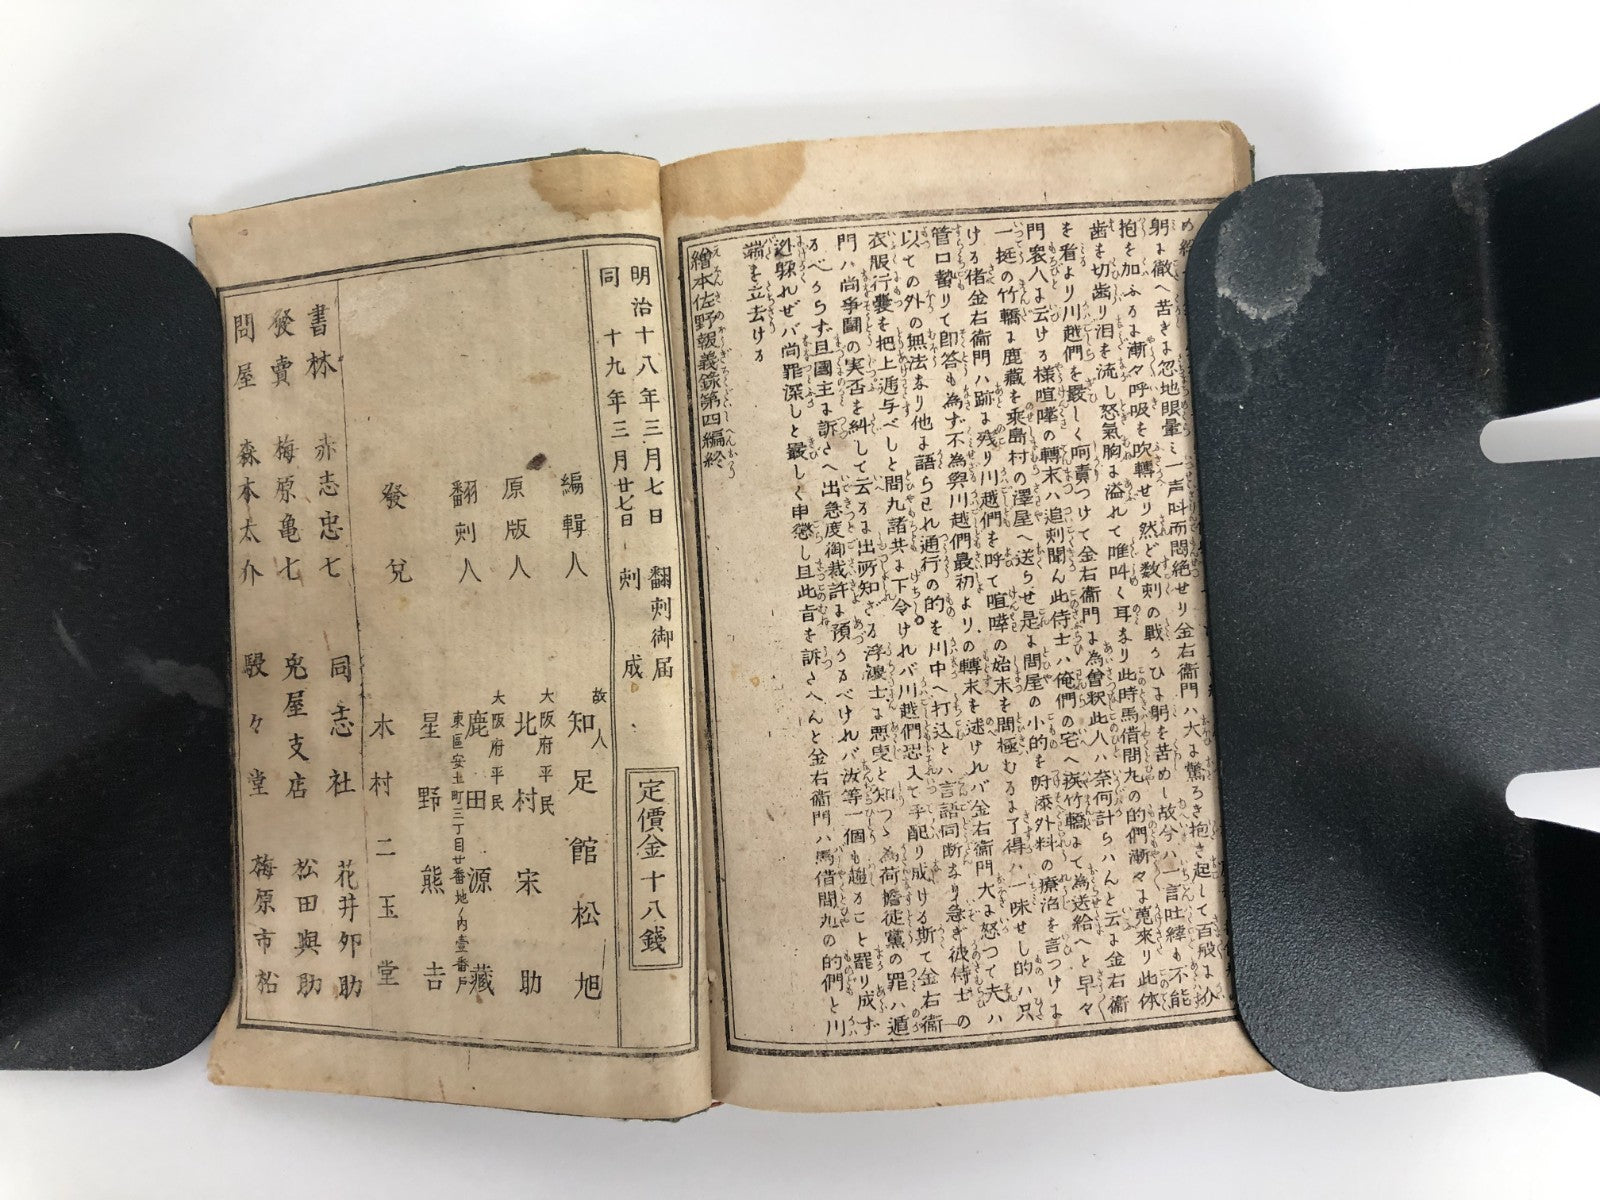 躬に徹へ苦きよ忽地眼暈て一声叫而悶絶せり金右衞門ハ大に驚ろき抱き起して百般よ扒
抱を加ふるに漸々呼吸を吹轉せり然ど数刺の戰ひに躬を苦めし故今ハ一言吐緯も不能
歯を切歯り泪を流し怒氣胸に溢れて唯叫く耳なり此時馬借問丸の的們漸々に蒐來り此体
を看より川越們を最しく呵責つけて金右衞門に為曾釈此人ハ奈何計らハんと云に金右衞
門衆人に云ける様喧嘩の轉末ハ追刺聞ん此侍士ハ俺們の宅へ疾竹轎にて為送給へと早々
一挺の竹轎に鹿藏を乘島村の澤屋へ送らせ是に問屋の小的を附添外料の療治を言つけよ
ける偖金右衞門ハ跡に残り川越們を呼て喧嘩の始末を間極むるに了得ハ一味せし的ハ只
管口蟄りて即答も為ず不為與川越們最初よりの轉末を述けれバ金右衞門大に怒つて夫ハ
以ての外の無法なり他に語られ通行の的を川中へ打込とハ言語同断なり急ぎ彼侍士の
衣服行嚢を把上逓与べしと問丸諸共に下令けれバ川越們恐入て手配り成ける斯て金右衞
門ハ尚爭鬪の実否を糾して云るに出所知ざる浮浪士に悪叟と知つゝ為荷擔徒黨の罪ハ遁
るべからず且國主に訴さへ出急度御裁許に預かるべけれバ汝等一個も趨ること罷り成ず
迯躱れぜバ尚罪深しと最しく申懲し且此旨を訴さへんと金右衞門ハ馬借問丸の的們と川
端を立去ける
繪本佐野報義錄第四編終
明治十八年三月七日 翻刻御届
同 十九年三月廿七日 刻成
定價金十八錢
編輯人 故人 知足館松旭
原版人 大阪府平民 北村宋助
翻刻人 大阪府平民 鹿田源藏
東區安土町三丁目廿番地ノ内壹番戸
星野熊吉
發兌 木村二玉堂
書林 赤志忠七 同志社 花井卯助
發賣 梅原亀七 兎屋支店 松田與助
問屋 森本太介 駸々堂 梅原市松